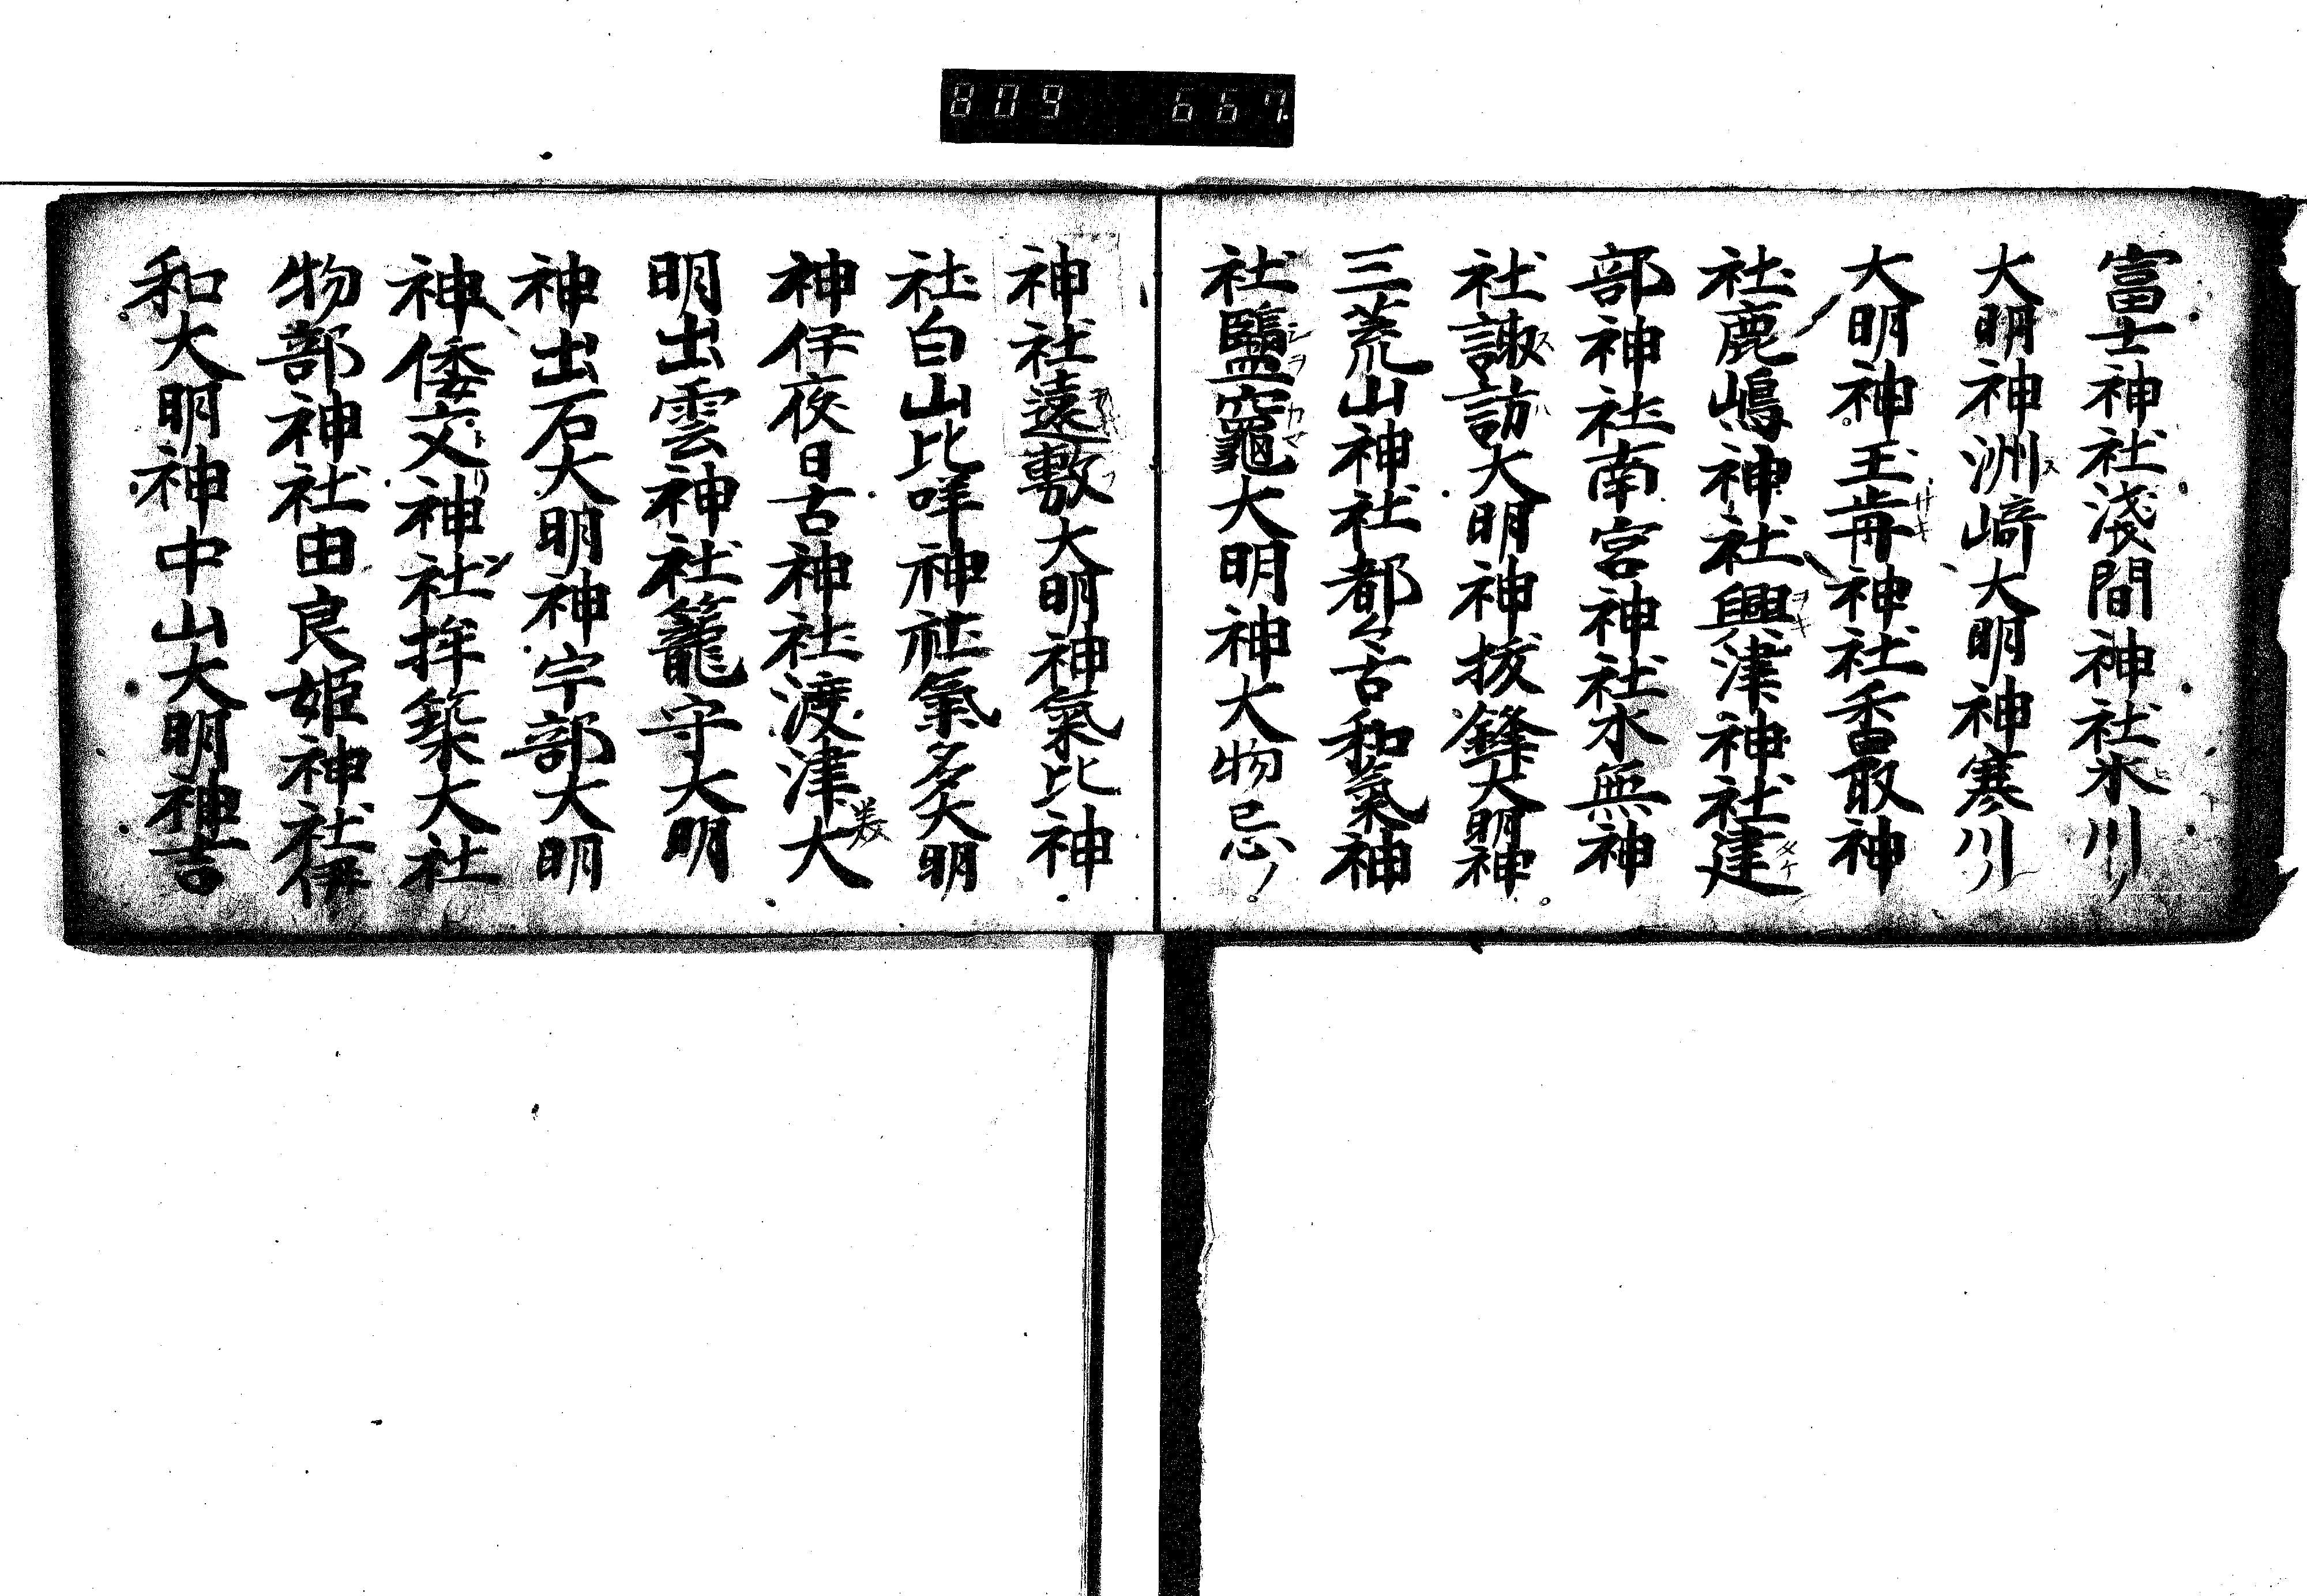 809 667
富士神社浅間神社氷川
大明神洲﨑大明神寒川
大明神玉前神社香取神
社鹿嶋神社興津神社建
部神社南宮神社水無神
社諏訪大明神抜鋒大明神
三荒山神社都々古和氣神
社鹽竈大明神大物忌ノ
神社遠敷大明神氣比神
社白山比咩神社氣多大明
神伊夜日古神社渡津大
明出雲神社籠守大明
神出石大明神宇部大明
神倭文神社杵築大社
物部神社由良姫神社伊
和大明神中山大明神吉